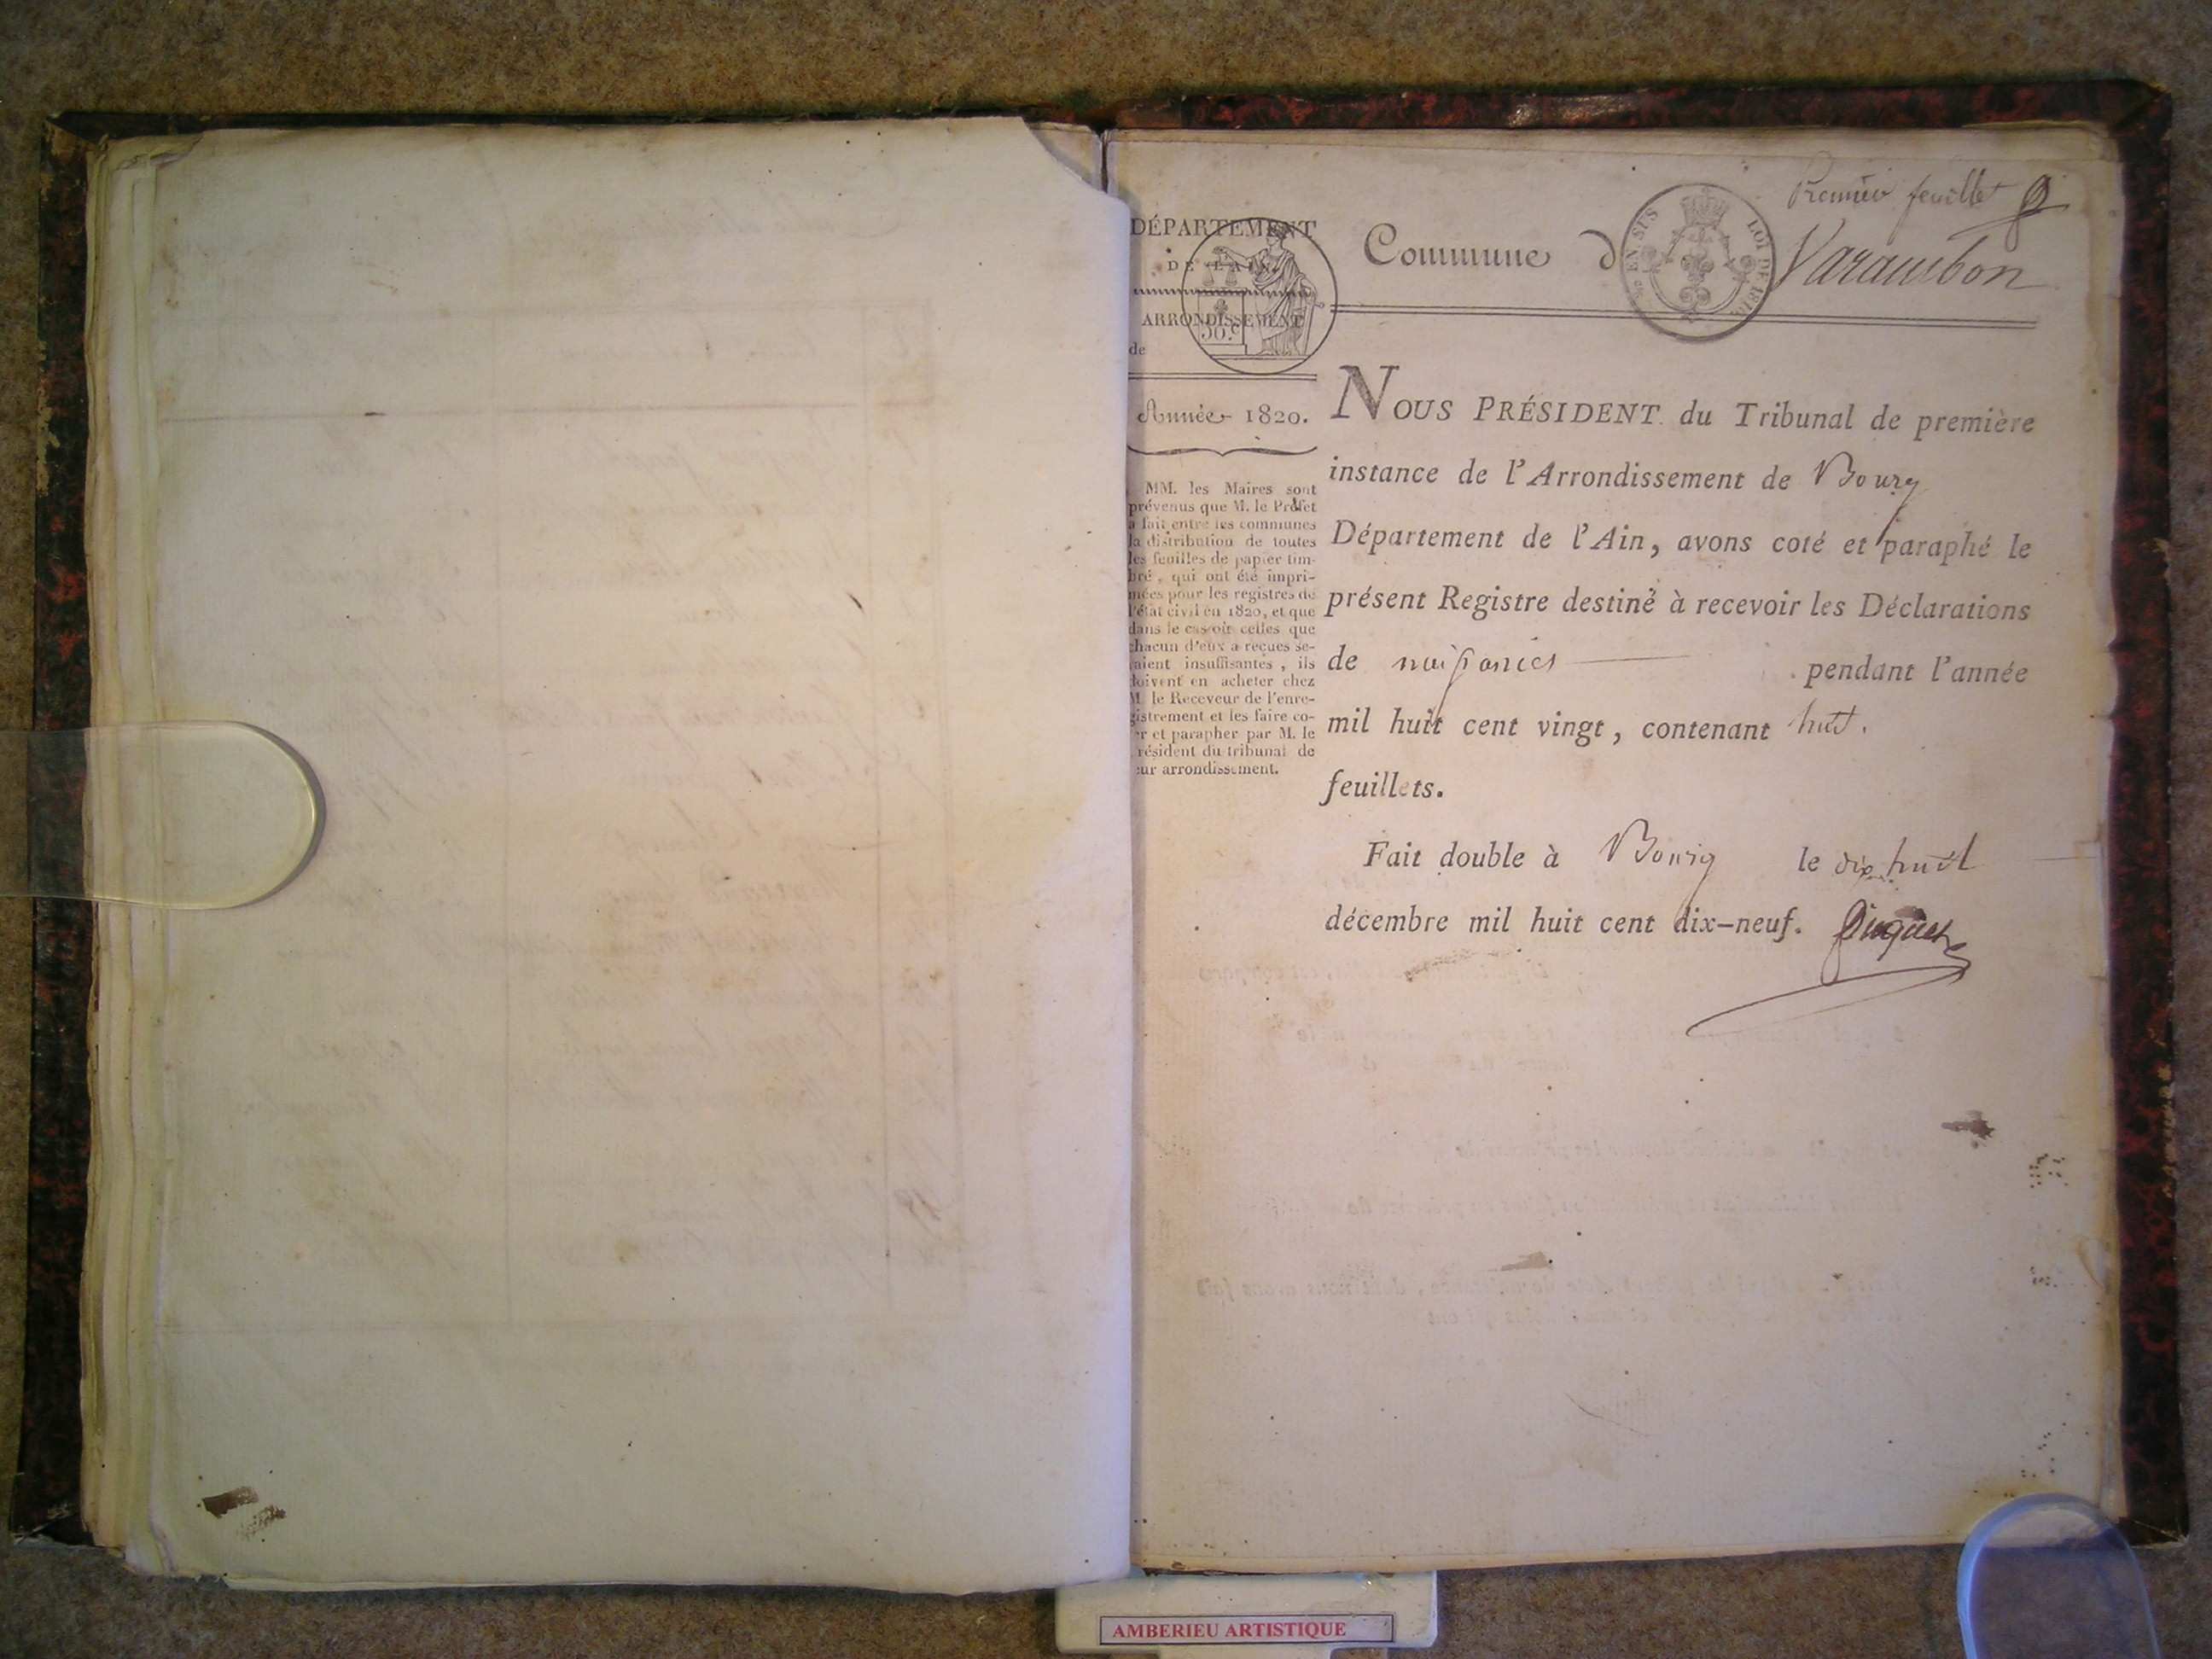 Premier feuillet
DÉPARTEMENT
DE L'AIN.
ARRONDISSEMENT
de
Commune d
Varambon
EN SUS
LOI DE 1816
50.c
Année 1820.
MM. les Maires sont
prévenus que M. le Préfet
a fait entre les communes
la distribution de toutes
les feuilles de papier tim-
bré, qui ont été impri-
mées pour les registres de
l'état civil en 1820, et que
dans le cas où celles que
chacun d'eux a reçues se-
raient insuffisantes, ils
doivent en acheter chez
M. le Receveur de l'enre-
gistrement et les faire co-
er et parapher par M. le
résident du tribunal de
eur arrondissement.
NOUS PRÉSIDENT du Tribunal de première
instance de l'Arrondissement de Bourg
Département de l'Ain, avons coté et paraphé le
présent Registre destiné à recevoir les Déclarations
de naissances pendant l'année
mil huit cent vingt, contenant huit.
feuillets.
Fait double à Bourg le dix huit
décembre mil huit cent dix-neuf.
AMBERIEU ARTISTIQUE